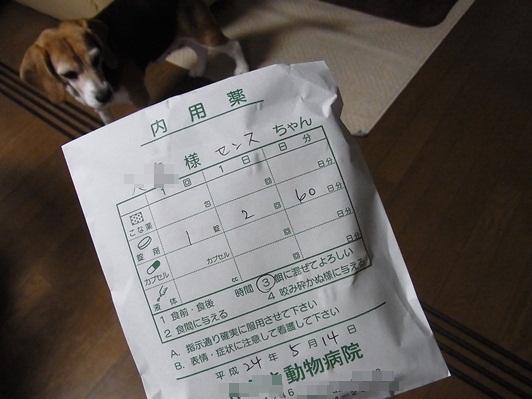 内用薬
様 センス ちゃん
1回 1日 日分
こな薬 包 回 日分
錠剤 1 錠 2 回 60 日分
カプセル カプセル 回 日分
液体 cc 回 日分
1 食前・食後 時間 ③ 餌に混ぜてよろしい
2 食間に与える 4 咬み砕かぬ様に与える
A. 指示通り確実に服用させて下さい
B. 表情・症状に注意して看護して下さい
平成 24 年 5 月 14 日
動物病院